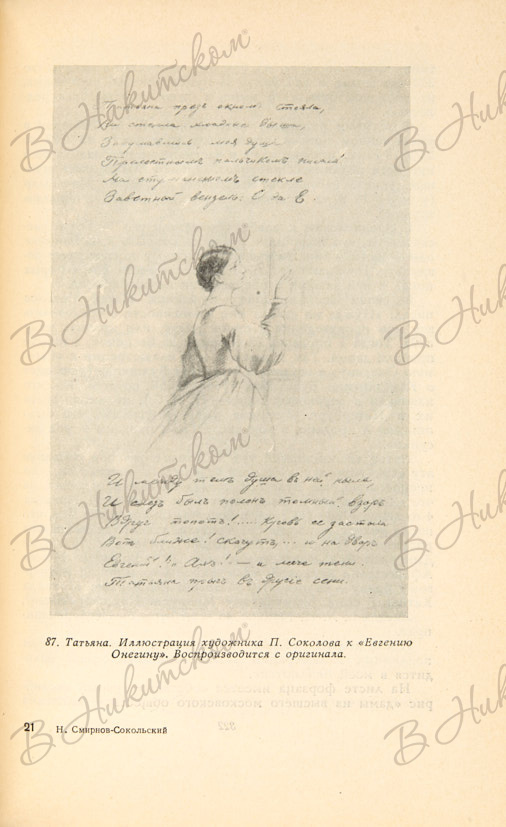 Татьяна предъ окномъ стояла,
На стекла хладныя дыша,
Задумавшись, моя душа
Прелестнымъ пальчикомъ писала
На отуманенномъ стекле
Заветной вензель: О да Е.
И между темъ душа въ ней ныла,
И слезъ былъ полонъ томный взоръ
Вдругъ топотъ!.... кровь ее застыла
Вотъ ближе! скачутъ,... и на дворъ
Евгеній! „Ахъ!" — и легче тени
Татьяна прыгъ въ другіе сени.
87. Татьяна. Иллюстрация художника П. Соколова к «Евгению
Онегину». Воспроизводится с оригинала.
21 Н. Смирнов-Сокольский
В. Никитском